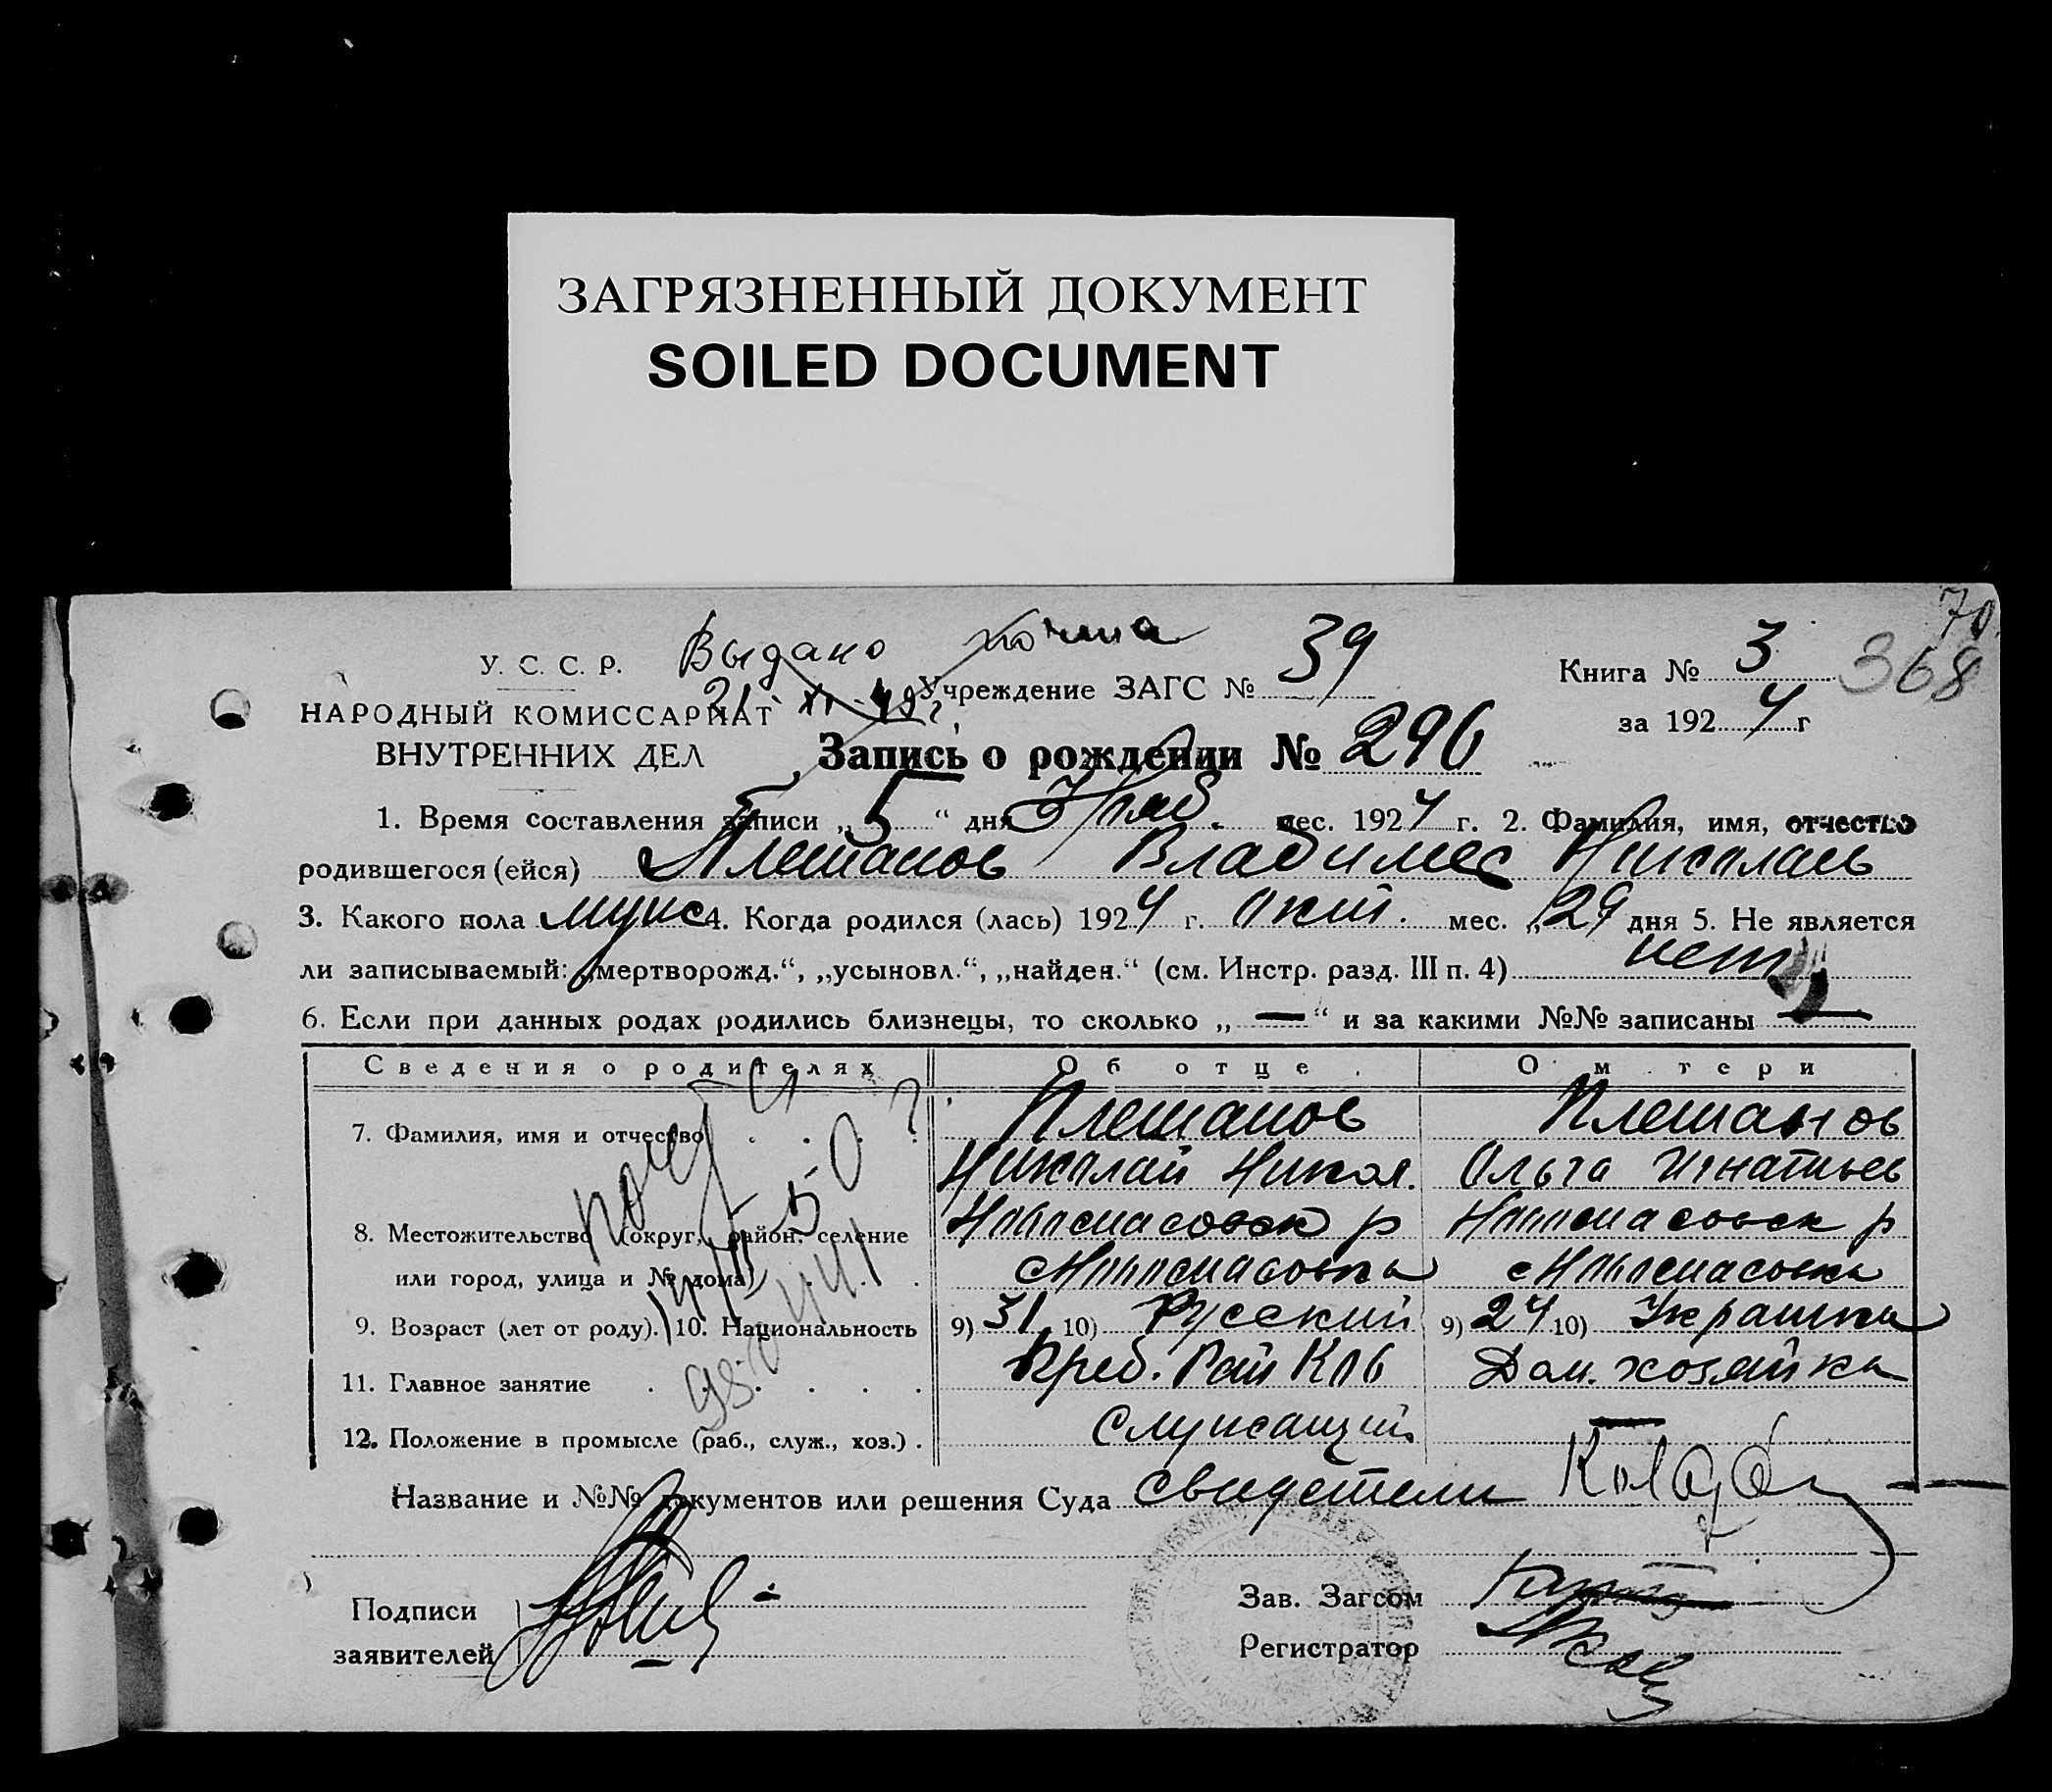 ЗАГРЯЗНЕННЫЙ ДОКУМЕНТ
SOILED DOCUMENT
70
368
Выдано
У. С. С. Р.
НАРОДНЫЙ КОМИССАРИАТ
ВНУТРЕННИХ ДЕЛ
Учреждение ЗАГС № 39
Книга № 3
за 1924 г
Запись о рождении № 296
1. Время составления записи „5“ дня Нояб. мес. 1924 г. 2. Фамилия, имя, отчество
родившегося (ейся) Плешанов Владимер Николаев
3. Какого пола мужс 4. Когда родился (лась) 1924 г. Окт. мес. „29 дня 5. Не является
ли записываемый: „мертворожд.“, „усыновл.“, „найден.“ (см. Инстр. разд. III п. 4) нет
6. Если при данных родах родились близнецы, то сколько „ — “ и за какими №№ записаны —
Сведения о родителях Об отце О м тери
7. Фамилия, имя и отчество Плешанов Плешанов
Николай Никол. Ольга Игнатьев
8. Местожительство (округ, район, селение р р
или город, улица и № дома)
9. Возраст (лет от роду). 10. Национальность 9) 31 10) Русский 9) 24 10) Украинка
11. Главное занятие Дом. хозяйка
12. Положение в промысле (раб., служ., хоз.) Служсащий —
Название и №№ документов или решения Суда свидетели
Подписи
заявителей
Зав. Загсом
Регистратор